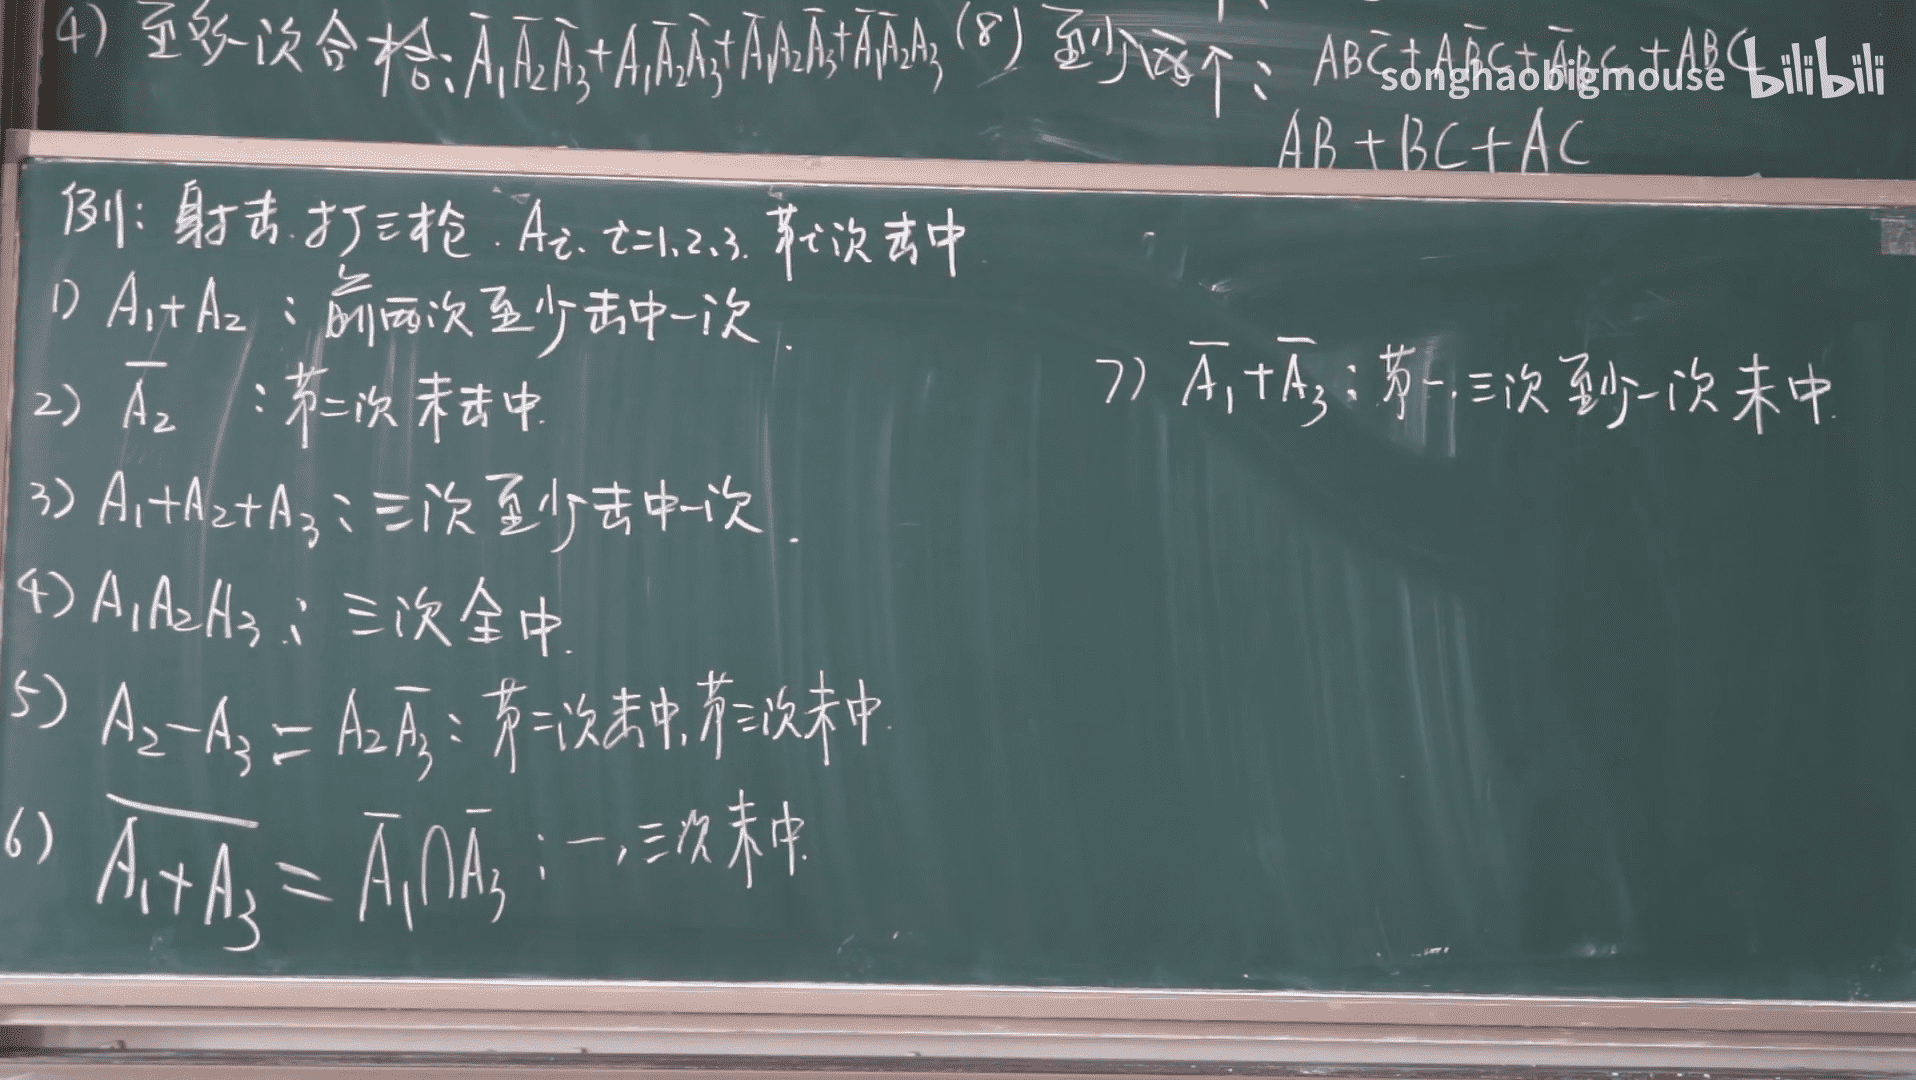 4) 至多一次合格: A̅₁A̅₂A̅₃+A₁A̅₂A̅₃+A̅₁A₂A̅₃+A̅₁A̅₂A₃
(8) 至少两个: ABC̅+AB̅C+A̅BC+ABC
AB+BC+AC
songhaobigmouse bilibili
例: 射击.打三枪. Aᵢ. i=1.2.3. 第i次击中.
1) A₁+A₂ : 前两次至少击中一次.
2) A̅₂ : 第二次未击中.
3) A₁+A₂+A₃ : 三次至少击中一次.
4) A₁A₂A₃ : 三次全中.
5) A₂-A₃ = A₂A̅₃ : 第二次击中,第三次未中.
6) \overline{A₁+A₃} = A̅₁∩A̅₃ : 一,三次未中.
7) A̅₁+A̅₃ : 第一,三次至少一次未中.